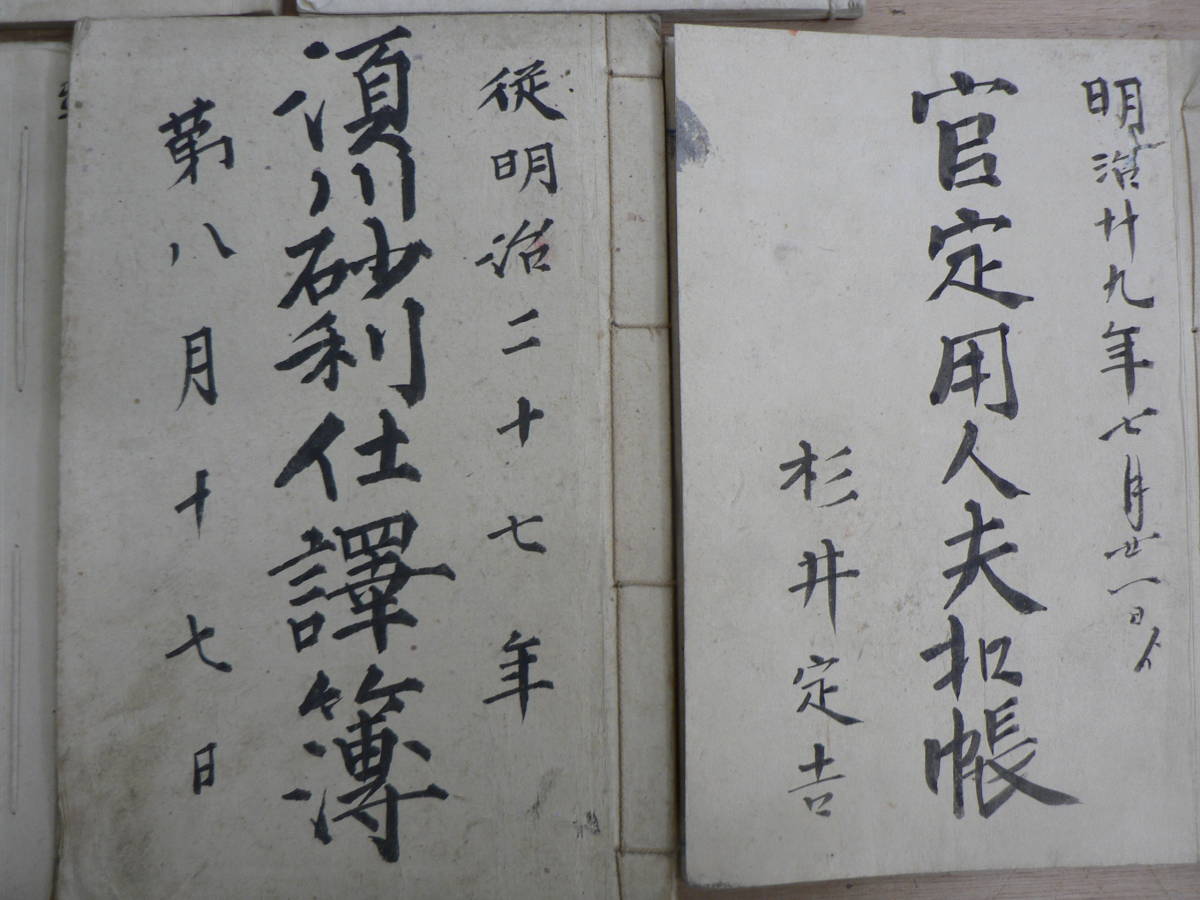 明治廿九年七月廿一日ヨリ
官定用人夫扣帳
杉井定吉
従明治二十七年
須川砂利仕譯簿
第八月十七日